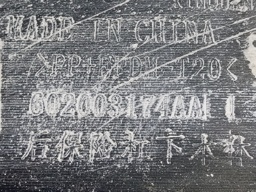 MADE IN CHINA
>PP+EPDM-T20<
602003174AM 1
后保险杠下本体